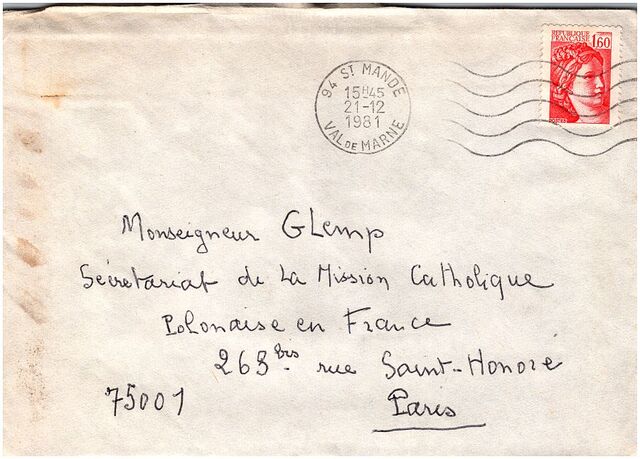 REPUBLIQUE
FRANÇAISE
1,60
94 ST MANDE
15H45
21-12
1981
VAL DE MARNE
Monseigneur GLemp
Sécretariat de La Mission Catholique
Polonaise en France
263 bis rue Saint-Honoré
75001 Paris